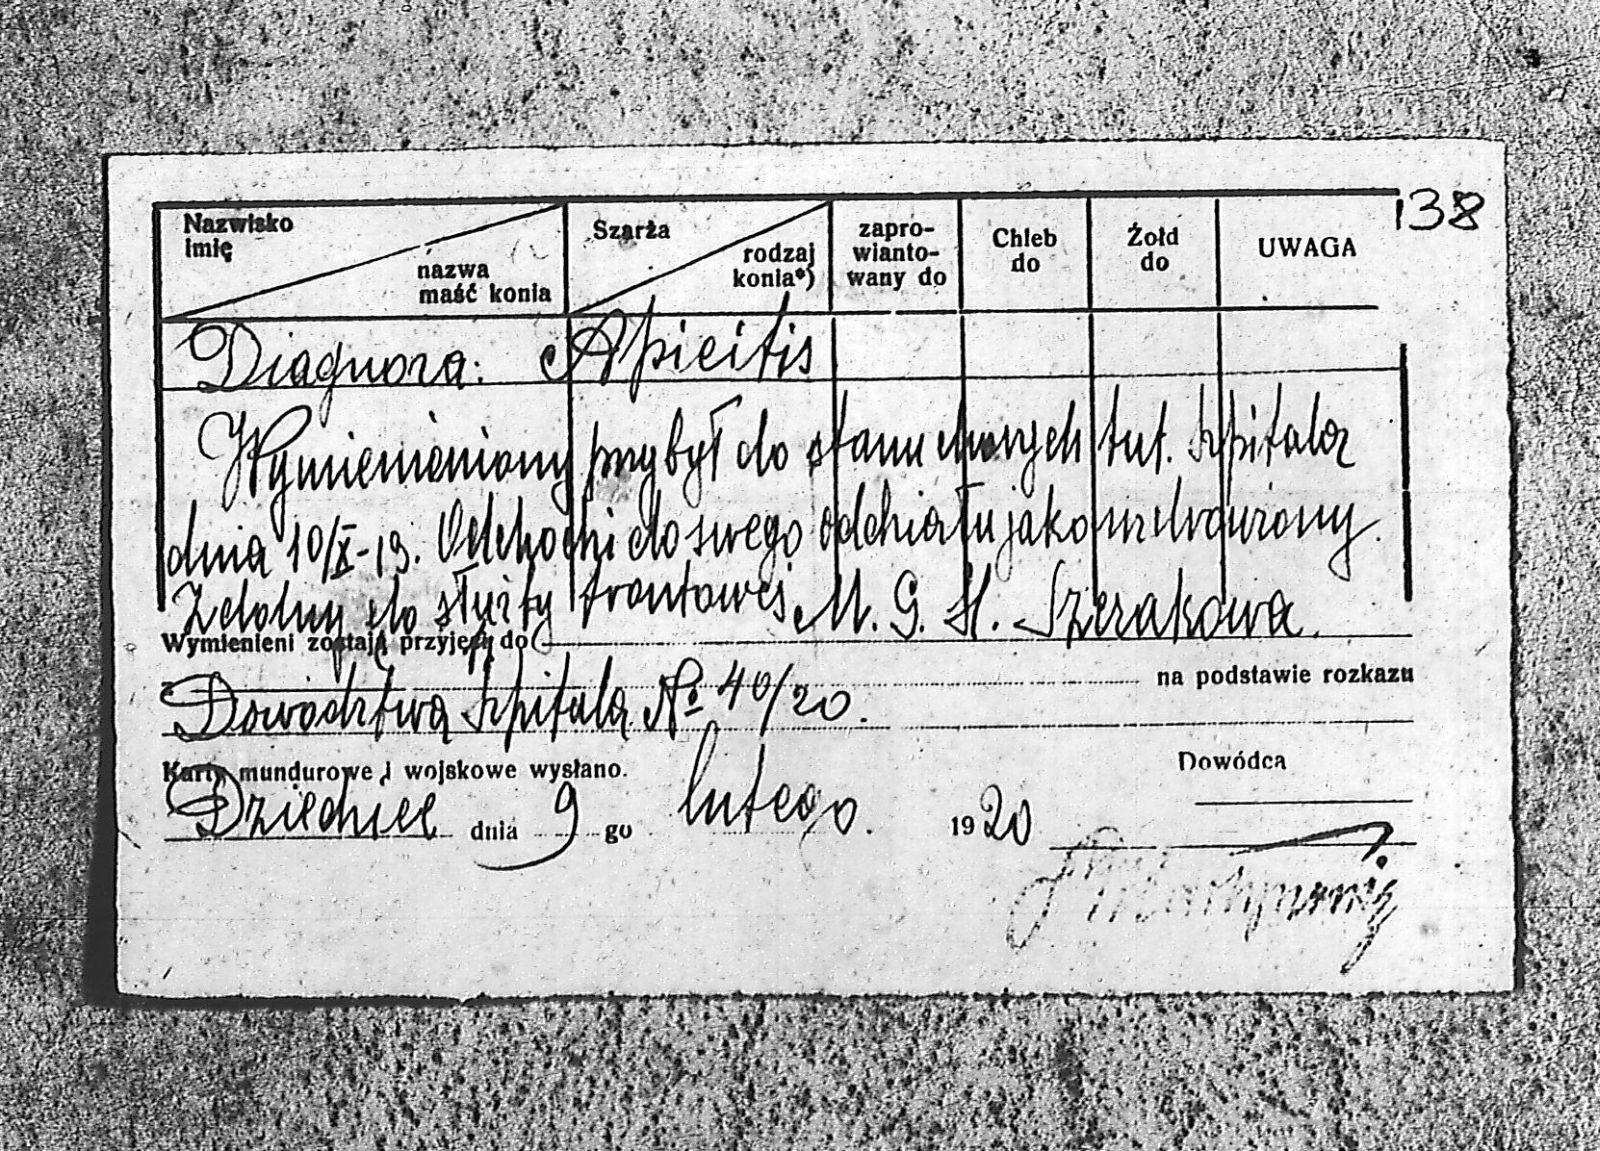 138
Nazwisko imię
nazwa maść konia
Szarża
rodzaj konia*)
zapro-wianto-wany do
Chleb do
Żołd do
UWAGA
Diagnoza: Apicitis
Wymieniony przybył do stanu chorych tut. Szpitala
dnia 10/X-19. Odchodzi do swego oddziału jako uzdrowiony.
Zdolny do służby frontowej M. G. H. Szczakowa.
Wymienieni zostają przyjęci do
na podstawie rozkazu
Dowództwa Szpitala № 40/20.
Karty mundurowe i wojskowe wysłano.
Dowódca
Dziedzice dnia 9 go lutego. 1920